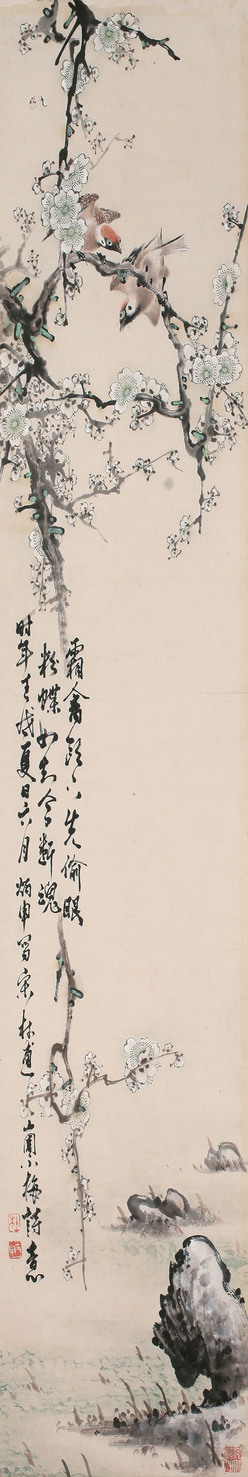 霜禽欲下先偷眼
粉蝶如知合斷魂
时年壬戌夏日六月炳申写宋林逋山園小梅詩意